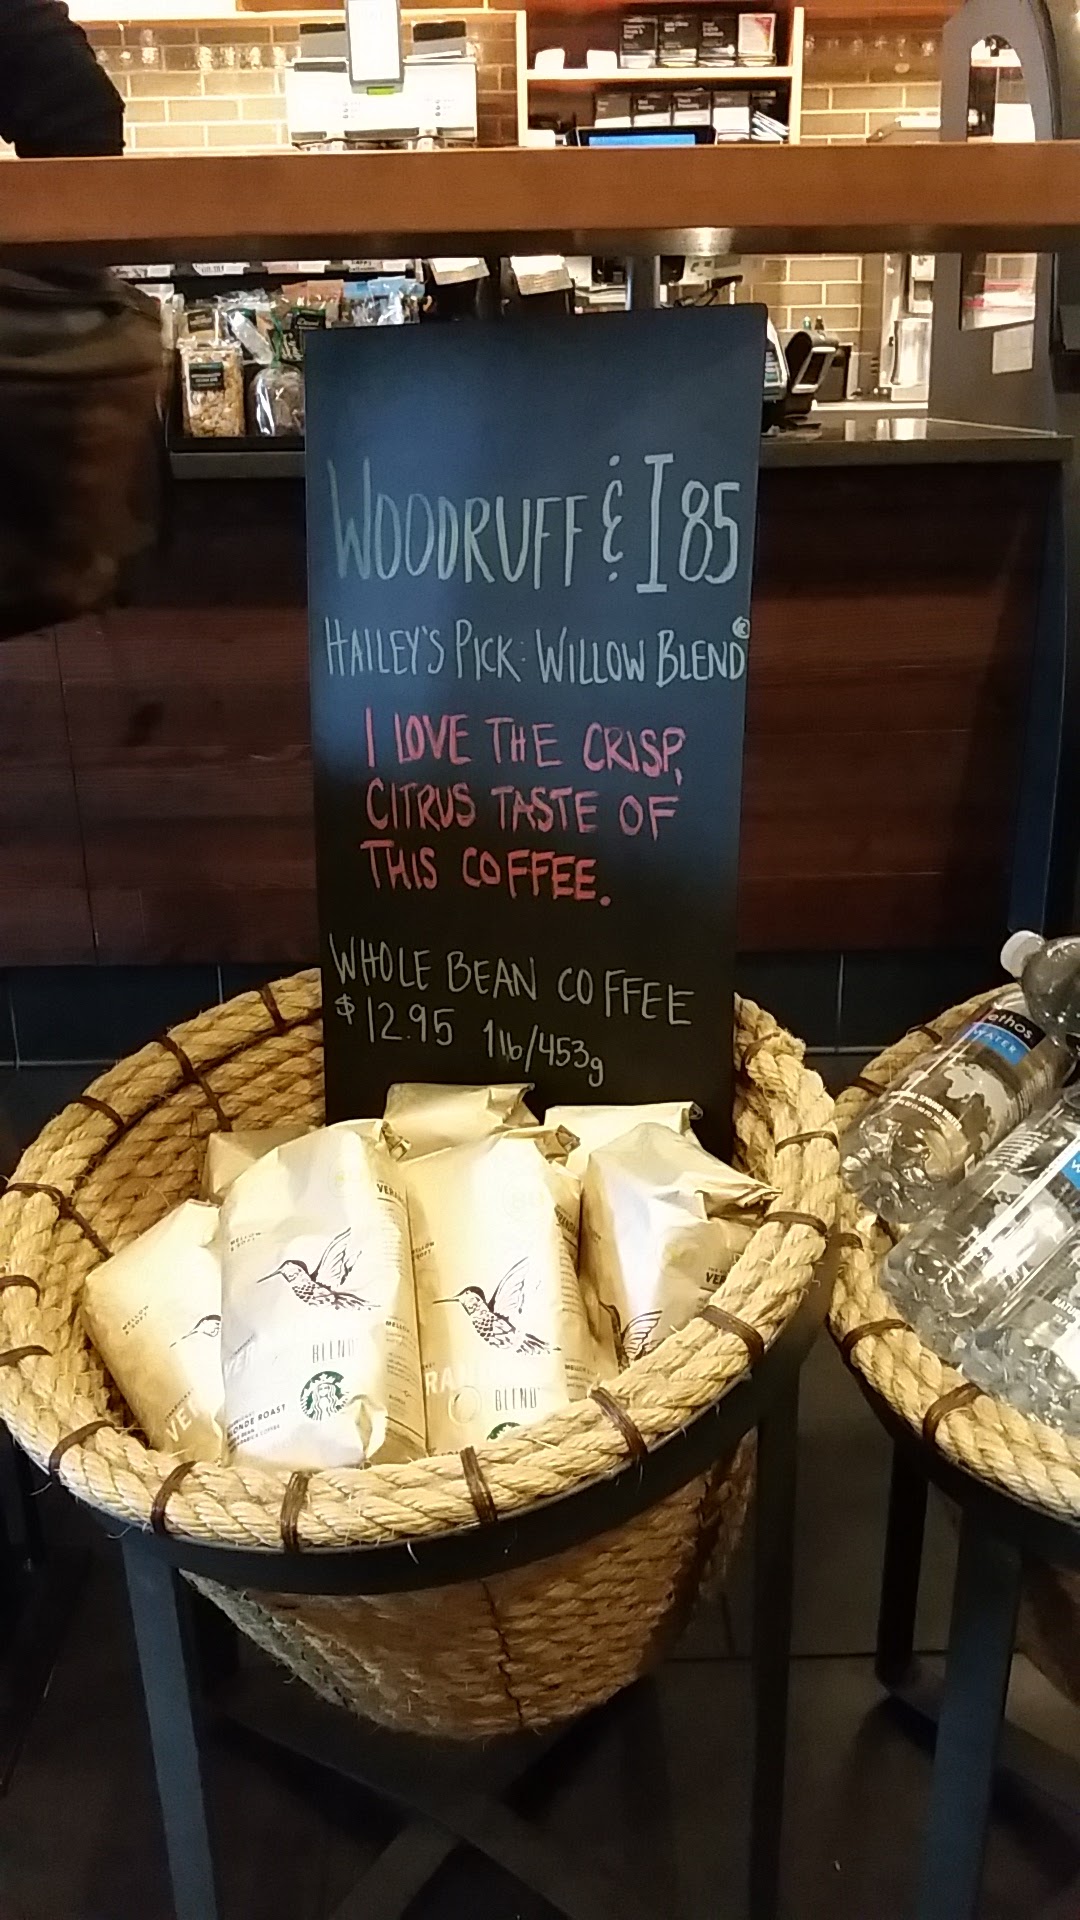 WOODRUFF & I85
HAILEY'S PICK: WILLOW BLEND®
I LOVE THE CRISP,
CITRUS TASTE OF
THIS COFFEE.
WHOLE BEAN COFFEE
$12.95 1lb/453g
ethos
WATER
BLEND
BLEND